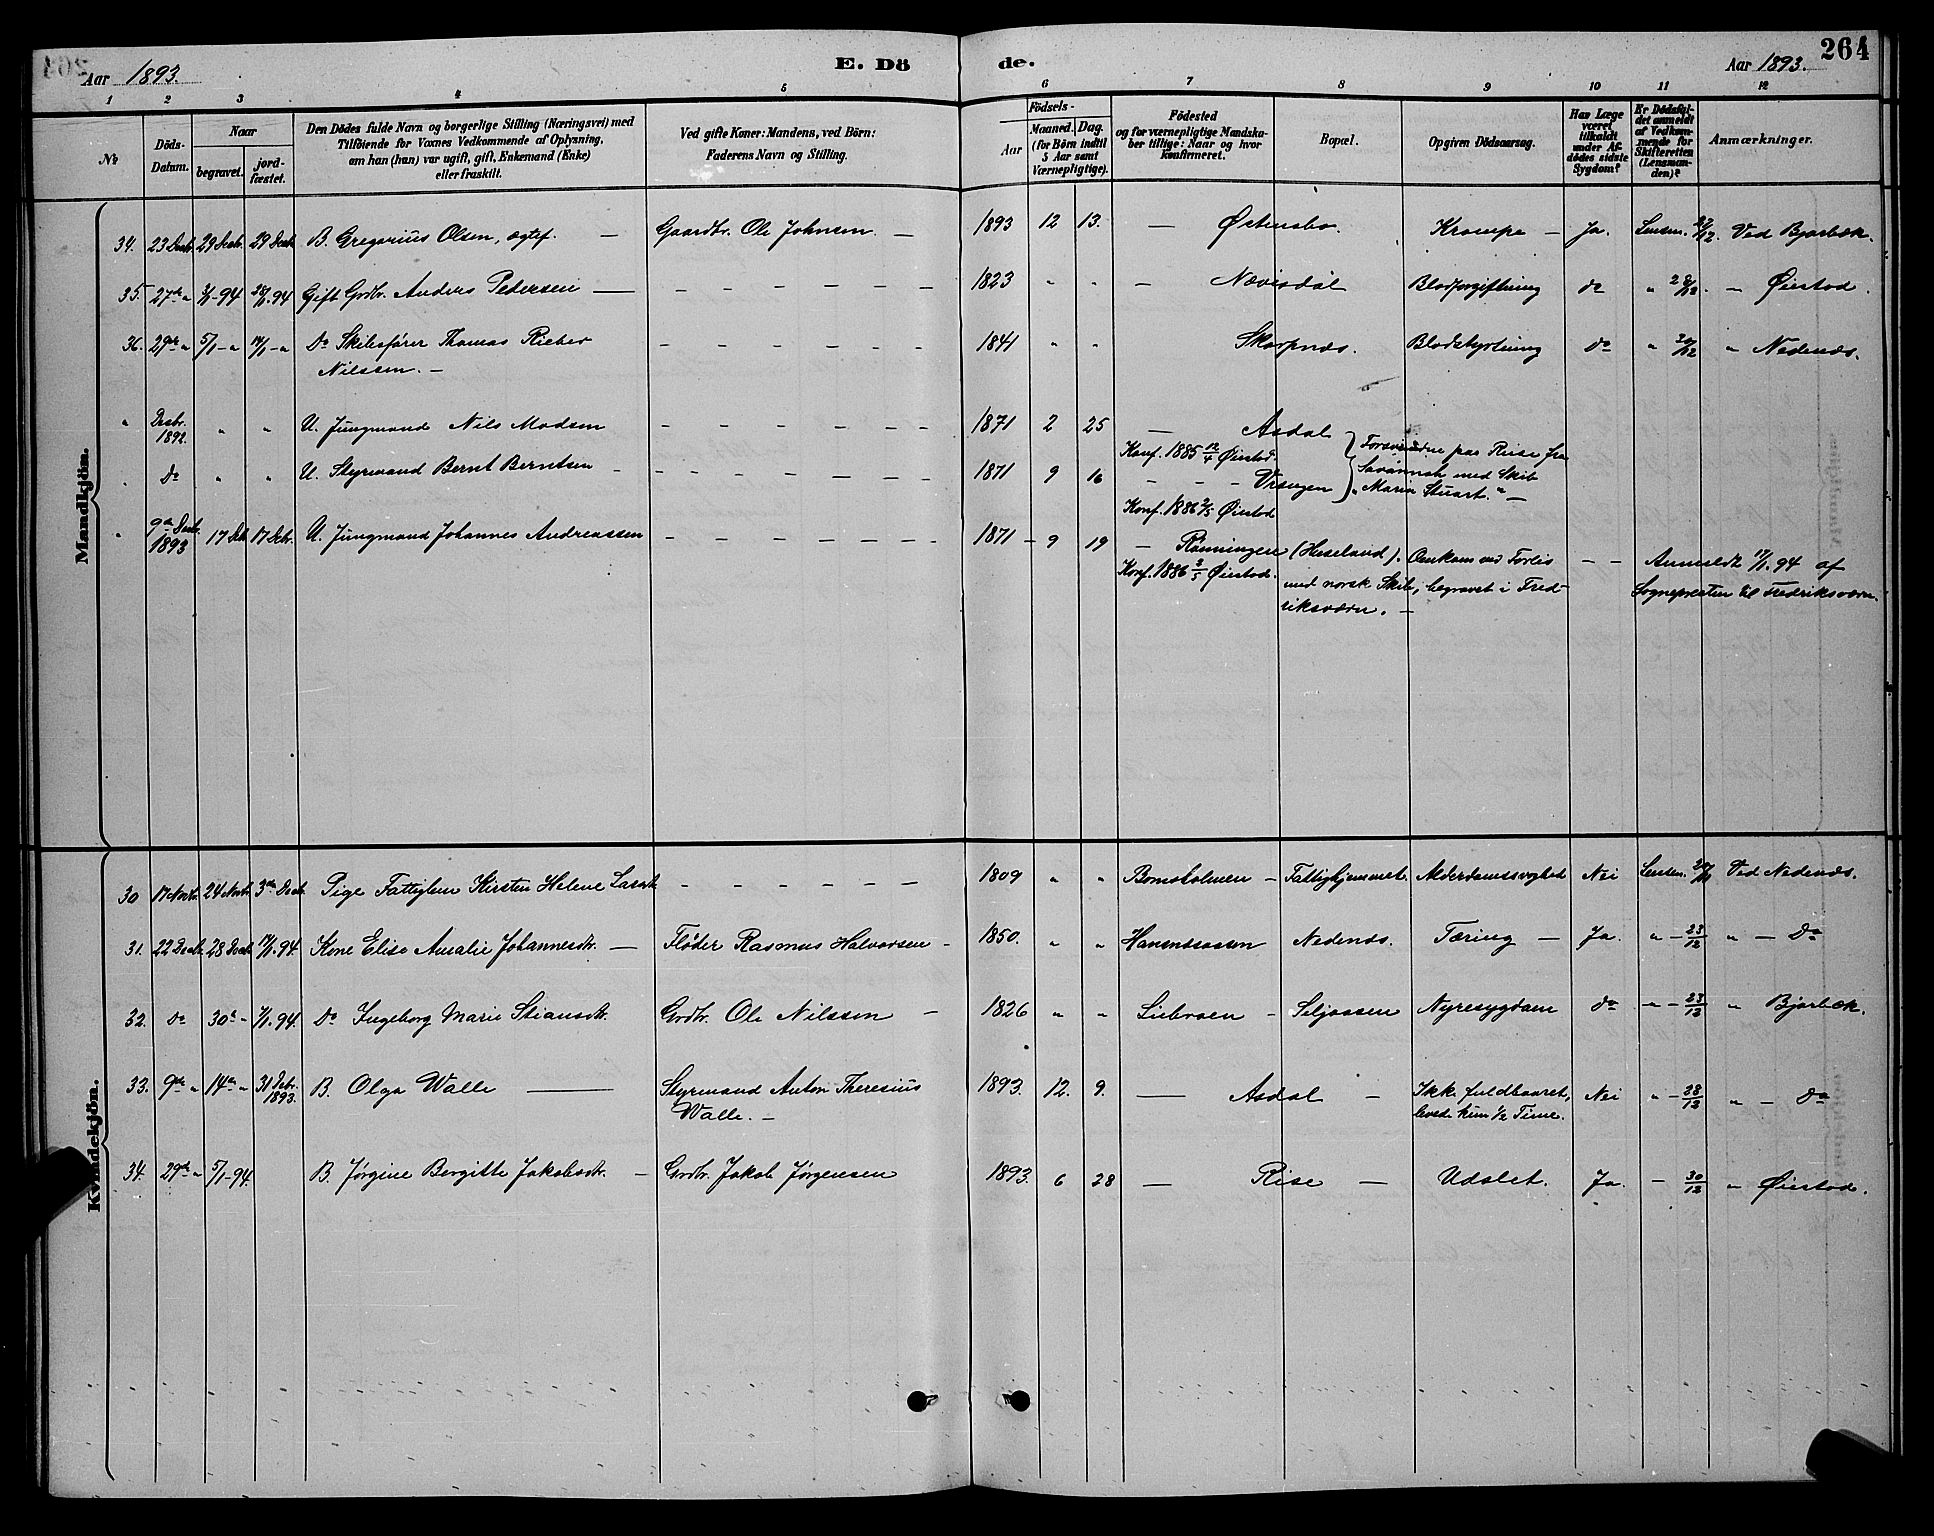 264
Aar 1893.
E. Dö
de.
Aar 1893.
1 2 3 4 5 6 7 8 9 10 11 12
No
Döds-
Datum.
Naar
begravet.
jord-
fæstet.
Den Dödes fulde Navn og borgerlige Stilling (Næringsvei) med
Tilföiende for Voxnes Vedkommende af Oplysning,
om han (hun) var ugift, gift, Enkemand (Enke)
eller fraskilt.
Ved gifte Koner: Mandens, ved Börn:
Faderens Navn og Stilling.
Födsels-
Aar
Maaned. Dag.
(for Börn indtil
5 Aar samt
Værnepligtige).
Födested
og for værnepligtige Mandska-
ber tillige: Naar og hvor
konfirmeret.
Bopæl.
Opgiven Dödsaarsag.
Har Læge
været
tilkaldt
under Af-
dødes sidste
Sygdom?
Er Dödsfal-
det anmeldt
af Vedkom-
mende for
Skifteretten
(Lensman-
den)?
Anmærkninger.
Mandkjön.
34. 23 Decbr. 29 Decbr. 29 Decbr. B. Gregorius Olsen, ægtef. — Gaardbr. Ole Johnsen. — 1893 12 13. — Østensbo. Krampe — Ja. Lensm. 27/12. Ved Bjorbæk.
35. 27de " 3/1-94 28/1.94 Gift Grdbr. Anders Pedersen — 1823 " " — Nævisdal Blodforgiftning do " 28/12. — Øiestad.
36. 29de " 5/1 - " 14/1 - " Do Skibsfører Thomas Rieber 1841 " " Skarpnæs. Blodstyrtning do " 30/12 " Nedenæs.
Nilssen. —
" Decbr. 1892. " " U. Jungmand Nils Madsen 1871 2 25 — Asdal
Konf. 1885 12/4 Øiestad.
Forsvundne paa Reise fra
" Do " " U. Styrmand Bernt Berntsen 1871 9 16 — Vrængen
Savannah med Skib
"Maria Stuart." —
Konf. 1886 2/5 Øiestad
" 9de Decbr. 1893 17 Dcbr. 17 Dcbr. U. Jungmand Johannes Andreassen 1871 — 9 19 — Rønningen (Huseland). Omkom ved Forlis — — Anmeldt 17/1.94 af
Konf. 1886 2/5 Øiestad. med norsk Skib, begravet i Fred- Sognepresten til Fredriksværn.
riksværn. —
Kvindekjön.
30 17 Novbr. 24 Novbr. 3die Decbr. Pige Fattiglem Kirsten Helene 1809 " " Fattighjemmet. Alderdomssvaghed Nei Lensm. Ved Nedenæs.
31. 22 Decbr. 28 Decbr. 14/1.94. Kone Elise Amalie Johannesdtr. — Fløder Rasmus Halvorsen — 1850. " " Nedenæs. Tæring — Ja. " — 23/12 " — Do
32. Do 30te " 7/1.94. Do Ingeborg Marie Stiansdtr. Grdbr. Ole Nilssen — 1826 " " Liebroen — Seljaasen Nyresygdom do " — 23/12 " Bjorbæk.
33. 9de " 14de " 31 Dcbr. 1893. B. Olga Walle — Styrmand Anton Theresius 1893. 12. 9. — Asdal — Ikke fuldbaaret, Nei " — 28/12 " — Do
Walle. — levede kun 1/2 Time.
34. 29de " 5/1-94. B. Jørgine Bergitte Jakobsdtr. — Grdbr. Jakob Jørgensen 1893. 6 28 — Rise — Udslet. Ja. — 30/12 " Øiestad.